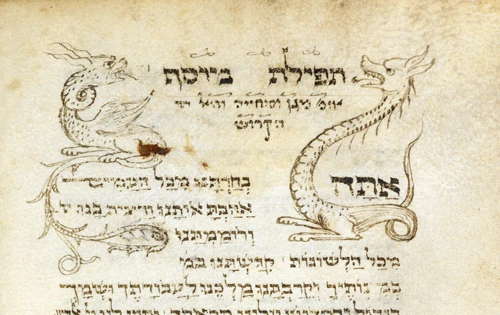 תפילת מוסף
אומ מגן ומחייה והאל
הקדוש
אתה בחרתנו מכל העמים
אהבת אותנו ורצית בנו
ורוממתנו
מכל הלשונות קדשתנו במ
במצותיך וקרבתנו מלכנו לעבודתך ושמך